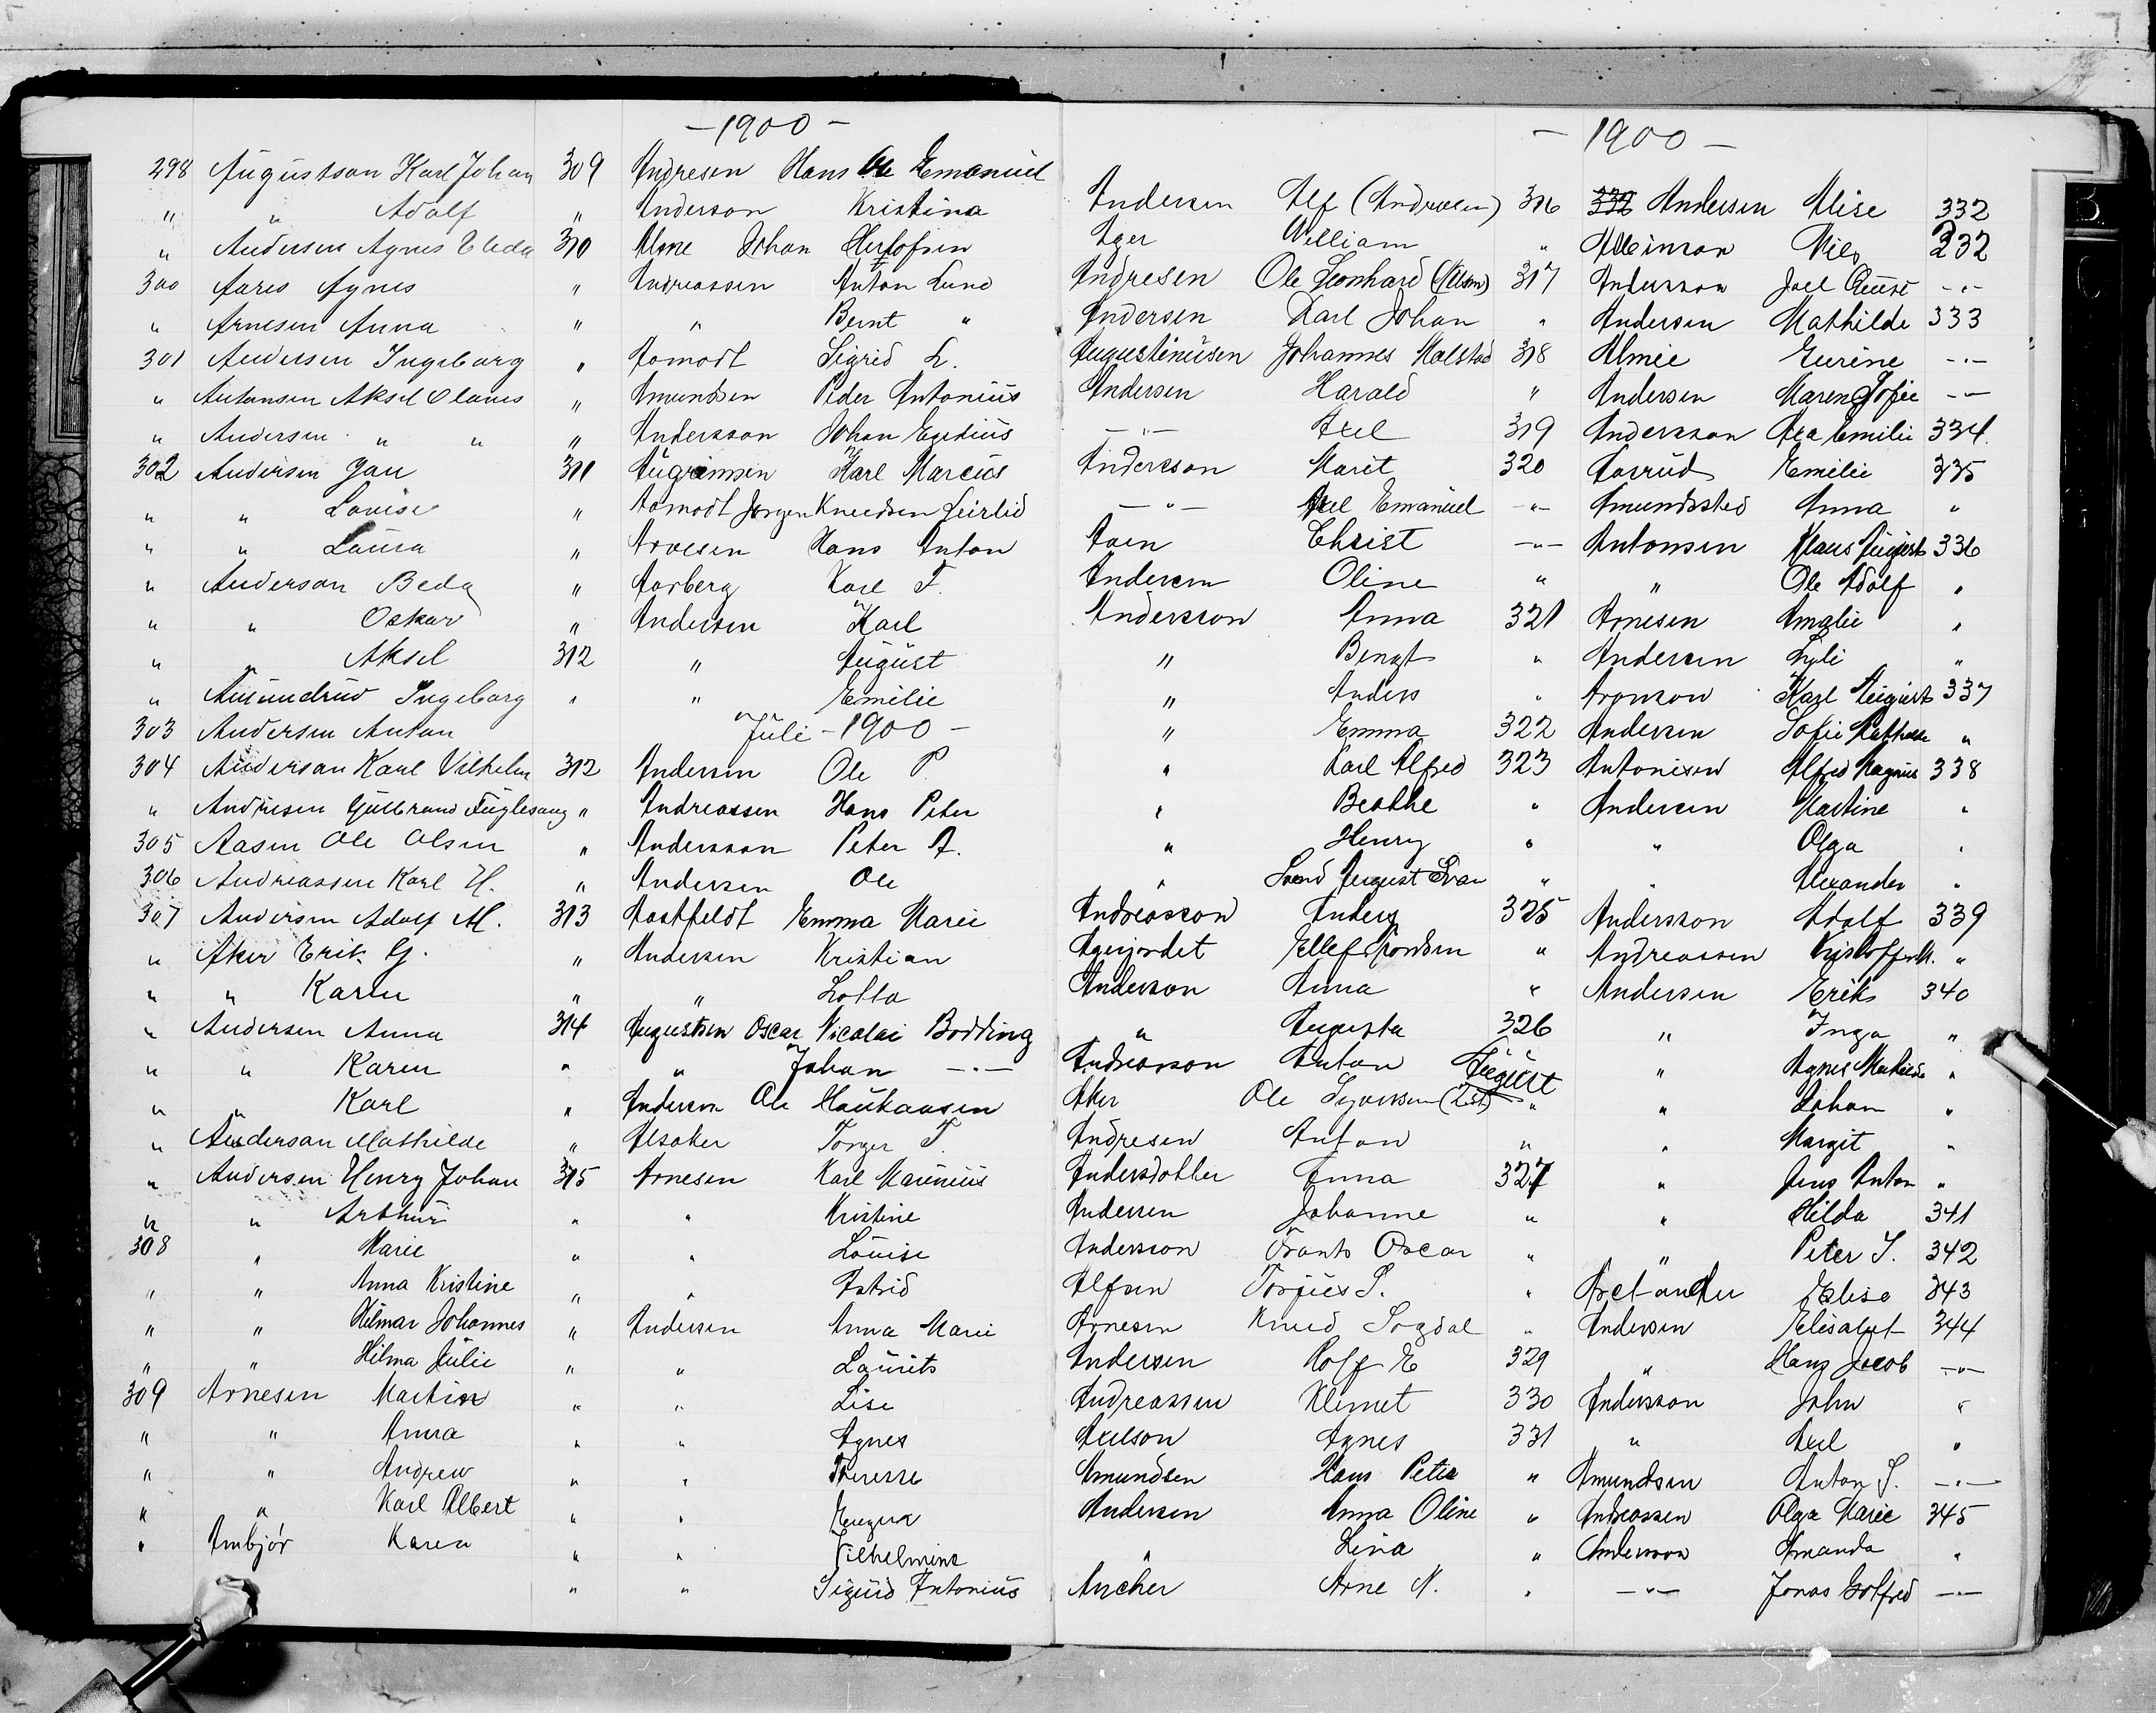 -1900-
298 Augustson Karl Johan
" " Adolf
" Andersen Agnes Elida
300 Aares Agnes
" Arnesen Anna
301 Andersen Ingeborg
" Antonsen Aksel Olaves
" Andersen " "
302 Andersen Jan
" " Louise
" " Laura
" Anderson Beda
" " Oskar
" " Aksel
" Amundrud Ingeborg
303 Andersen Anton
304 Anderson Karl Vilhelm
" Andresen Gulbrand Fuglesang
305 Aasen Ole Olsen
306 Andreassen Karl H.
307 Andersen Adolf M.
" Aker Erik G.
" " Karen
" Andersen Anna
" " Karen
" " Karl
" Anderson Mathilde
" Andersen Henry Johan
" " Arthur
308 " Marie
" " Anna Kristine
" " Hilmar Johannes
" " Hilma Julie
309 Arnesen Martin
" " Anna
" " Andrew
" " Karl Albert
" Ambjør Karen
309 Andresen Hans Ole Emanuel
" Anderson Kristina
310 Alme Johan Herlofsen
" Andreassen Anton Lund
" " Bernt "
" Aamodt Sigrid L.
" Amundsen Peder Antonius
" Andersson Johan Egidius
311 Karl Marcus
" Aamodt Jørgen Knudsen Leirlid
" Arvesen Hans Anton
" Aarberg Karl F.
" Andersen Karl
312 " August
" " Emilie
Juli - 1900 -
312 Andersen Ole P.
" Andreassen Hans Peter
" Andersson Peter A.
" Andersen Ole
313 Aastfeldt Emma Marie
" Andersen Kristian
" " Lotta
314 Augustsen Oscar Nicolai Bodding
" " Johan -"-
" Andersen Ole Haukaasen
" Alsaker Torger T.
315 Arnesen Karl Marinius
" " Kristine
" " Louise
" " Astrid
" Andersen Anna Marie
" " Laurits
" " Lise
" " Agnes
" " Therese
" "
" " Vilhelmine
" " Sigurd Antonius
- 1900 -
Andersen Alf (Andresen) 316
Ager William "
Andresen Ole Leonhard 317
Andersen Karl Johan "
Augustinusen Johannes Malstad 318
Andersen Harald "
-"- Axel 319
Andersson Marit 320
-"- Axel Emanuel -"-
Aaen Christ -"-
Andersen Oline "
Andersson Anna 321
" Bengt "
" Anders "
" Emma 322
" Karl Alfred 323
" Beathe "
" Henry "
" August "
Andreasson Anders 325
Agerjordet Ellef "
Anderson Anna "
" Augusta 326
Andreasson Anton August
Aker Ole "
Andresen Anton "
Andersdotter Anna 327
Andersen Johanne "
Andersson Frants Oscar "
Alfsen Torjus S. "
Arnesen Knud Sogdal "
Andersen Rolf E 329
Andreassen Klemet 330
Axelson Agnes 331
Amundsen Hans Peter "
Andersen Anna Oline "
" Lina "
Ancher Arne N. "
332 Andersen Alise 332
Nils 232
Andersson Joel -"-
Andersen Mathilde 333
Almie Eurine -"-
Andersen Maren Sofie -"-
Andersson Axa Emilie 334
Aasrud Emilie 335
Amundsted Anna "
Antonsen Klaus August 336
" Ole Adolf "
Arnesen Amalie "
Andersen "
Aronson Karl August 337
Andersen Sofie "
Antonisen Alfred Magnus 338
Andersen Martine "
" Olga "
" Alexander "
Andersson Adolf 339
Andreassen Kristoffer M. "
Andersen Erik 340
" Inga "
" Agnes Mathilde "
" Johan "
" Margit "
" Jens Anton "
" Hilda 341
" Peter S. 342
Arctander Elise 343
Andersen Elisabet 344
" Hans Jacob -"-
Andersson John "
" Axel "
Amundsen Anton S. -"-
Andreassen Olga Marie 345
Andersson Amanda "
-"- Jonas Gotfred -"-
B
C